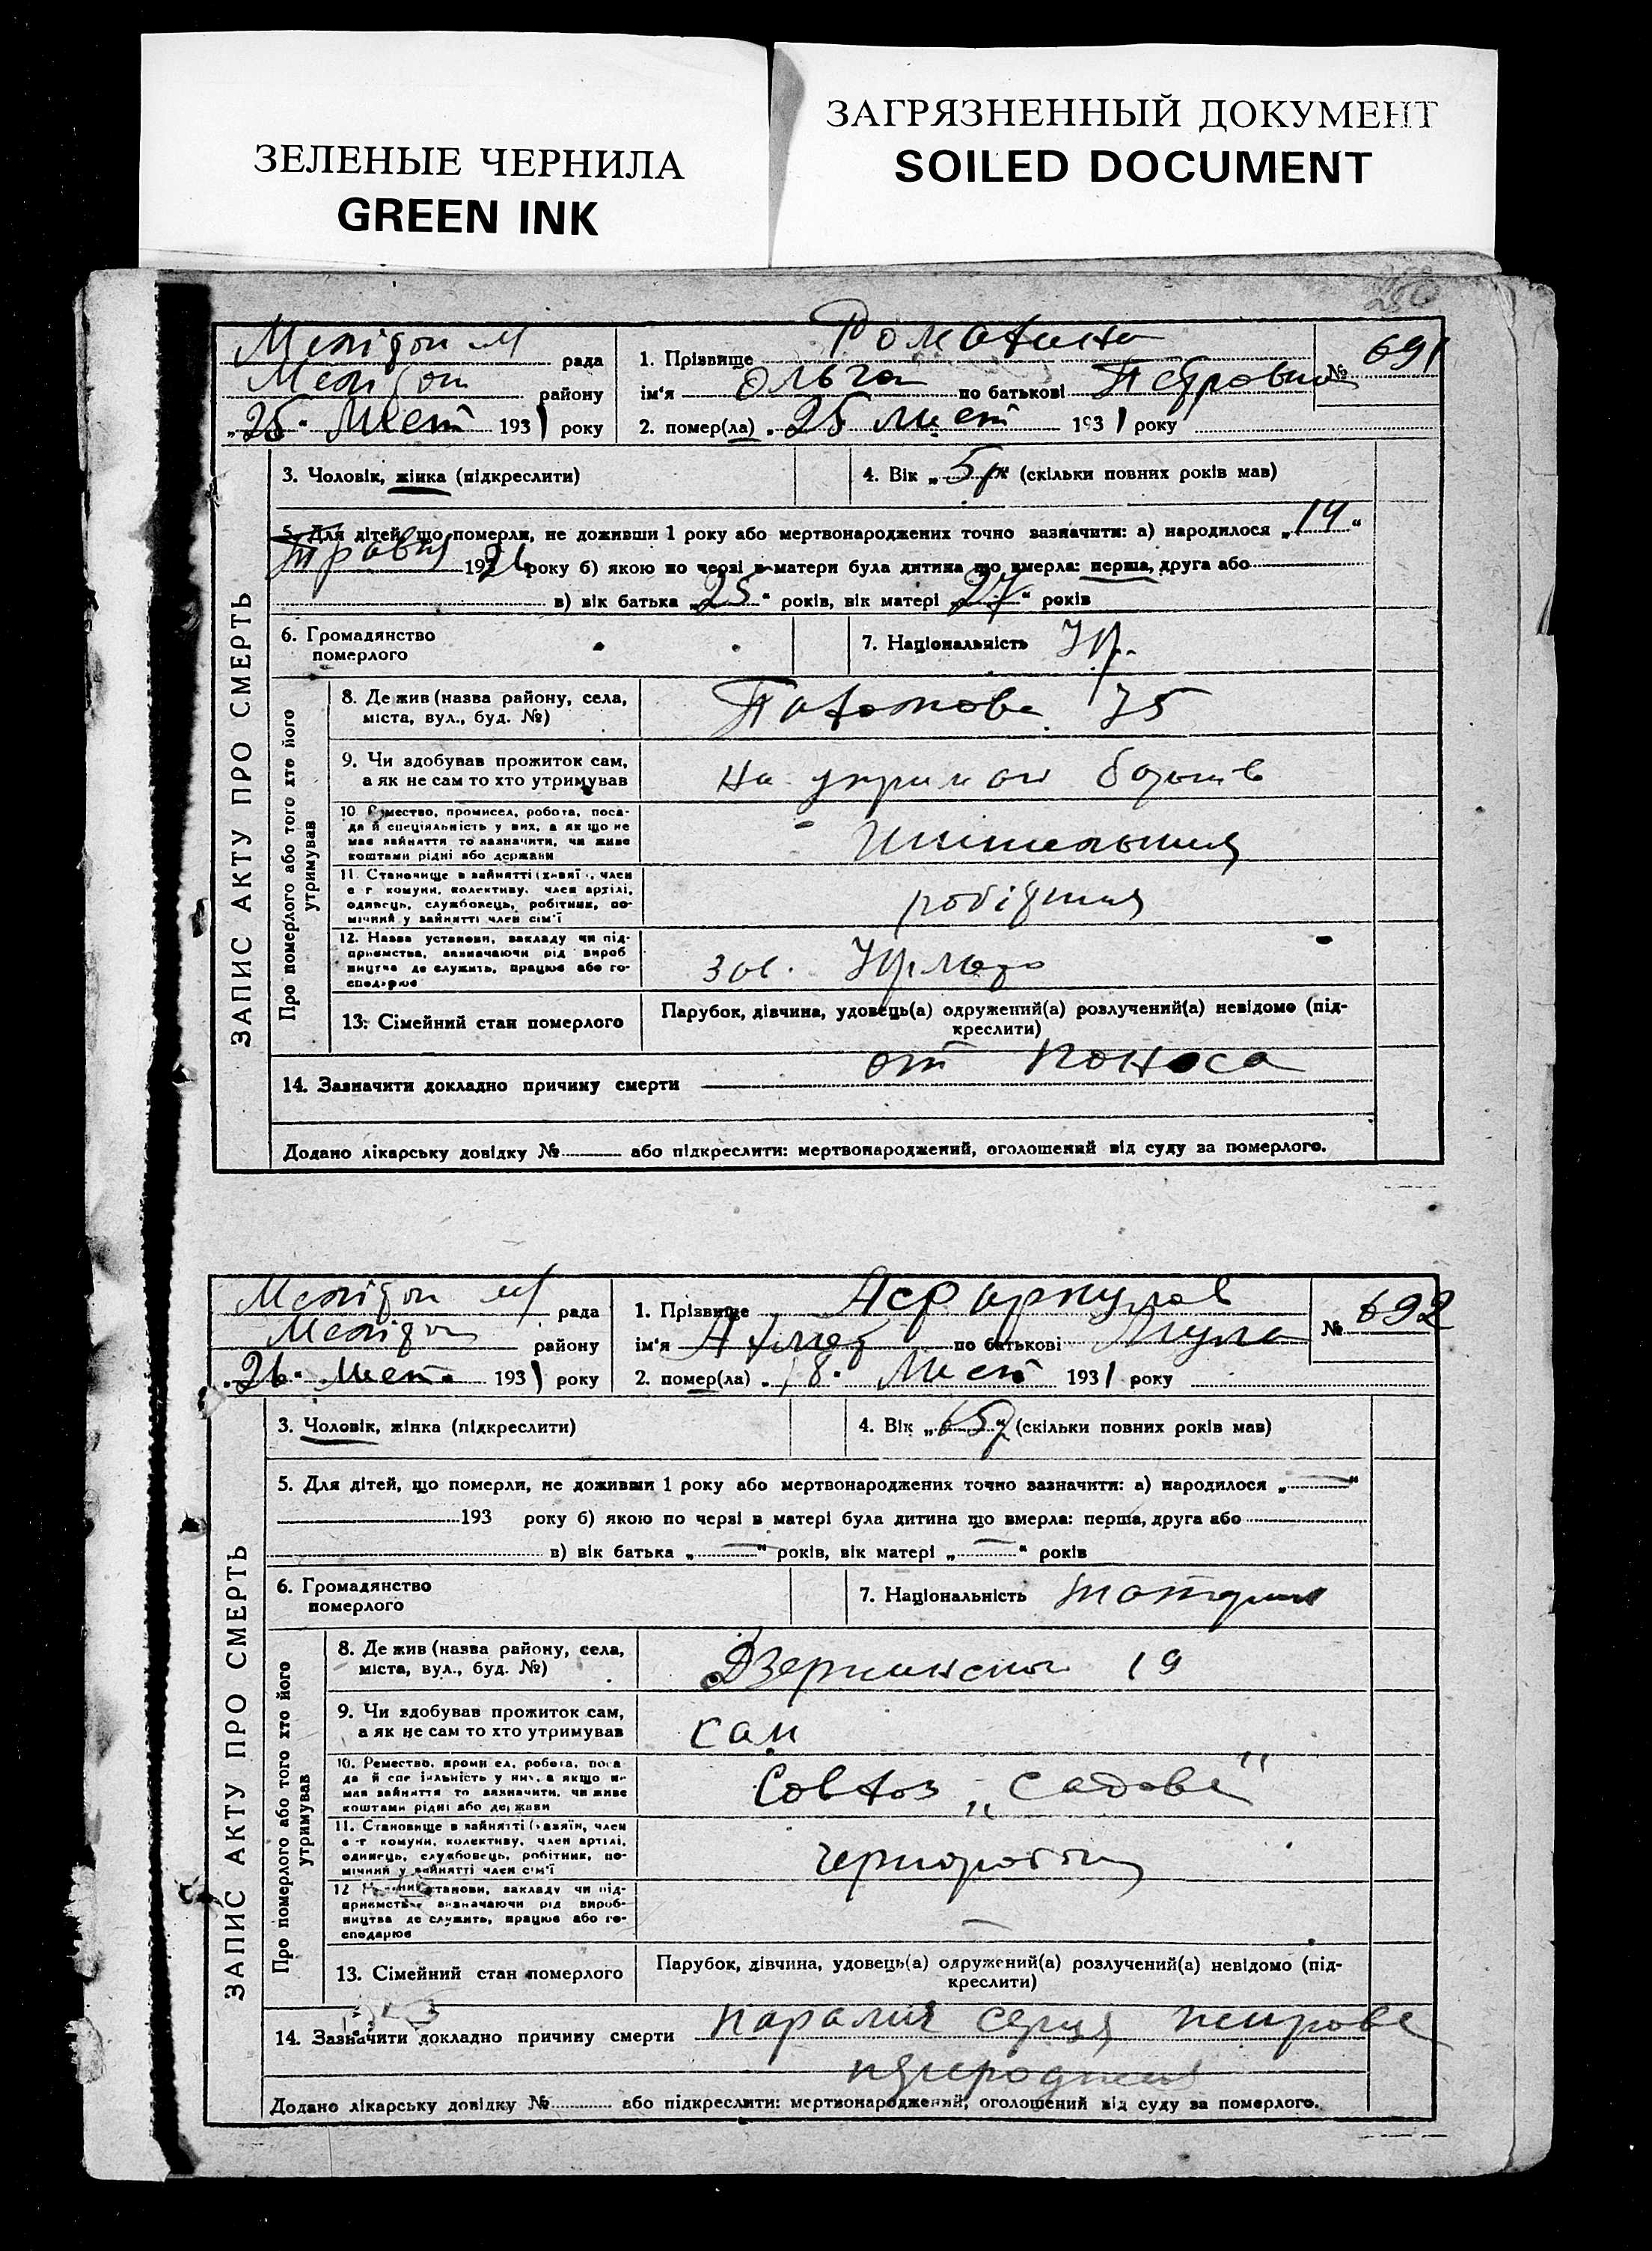 ЗЕЛЕНЫЕ ЧЕРНИЛА
GREEN INK
ЗАГРЯЗНЕННЫЙ ДОКУМЕНТ
SOILED DOCUMENT
рада
району
"25" 1931 року
1. Прізвище
ім'я Ольга по батькові Петровна
2. помер(ла) "25 1931 року
№ 691
ЗАПИС АКТУ ПРО СМЕРТЬ
3. Чоловік, жінка (підкреслити)
4. Вік „5р" (скільки повних років мав)
5. Для дітей, що померли, не доживши 1 року або мертвонароджених точно зазначити: а) народилося „14"
Травня 1926 року б) якою по черзі в матери була дитина що вмерла: перша, друга або
в) вік батька „25" років, вік матері „27" років
6. Громадянство
померлого
7. Національність Укр.
Про померлого або того хто його
утримував
8. Де жив (назва району, села,
міста, вул., буд. №)
75
9. Чи здобував прожиток сам,
а як не сам то хто утримував
на батьків
10. Ремество, промисел, робота, поса-
да й спеціяльність у них, а як що не
має зайняття то зазначити, чи живе
коштами рідні або держави
11. Становище в зайнятті (хазяїн, член
с-г комуни, колективу, член артілі,
одинець, службовець, робітник, по-
мічний у зайнятті член сім'ї
робітник
12. Назва установи, закладу чи під-
приємства, зазначаючи рід вироб
ництва де служить, працює або го-
сподарює
зав.
13. Сімейний стан померлого
Парубок, дівчина, удовець(а) одружений(а) розлучений(а) невідомо (під-
креслити)
14. Зазначити докладно причину смерти от поноса
Додано лікарську довідку № або підкреслити: мертвонароджений, оголошений від суду за померлого.
рада
району
"26" 1931 року
1. Прізвище
ім'я Ахмед по батькові
2. помер(ла) "18" 1931 року
№ 692
ЗАПИС АКТУ ПРО СМЕРТЬ
3. Чоловік, жінка (підкреслити)
4. Вік „65р" (скільки повних років мав)
5. Для дітей, що померли, не доживши 1 року або мертвонароджених точно зазначити: а) народилося „—"
193 року б) якою по черзі в матері була дитина що вмерла: перша, друга або
в) вік батька „—" років, вік матері „—" років
6. Громадянство
померлого
7. Національність татарин
Про померлого або того хто його
утримував
8. Де жив (назва району, села,
міста, вул., буд. №)
19
9. Чи здобував прожиток сам,
а як не сам то хто утримував
сам
10. Ремество, промисел, робота, поса-
да й спеціяльність у них, а якщо не
має зайняття то зазначити, чи живе
коштами рідні або держави
Совхоз „
11. Становище в зайнятті (хазяїн, член
с-г комуни, колективу, член артілі,
одинець, службовець, робітник, по-
мічний у зайнятті член сім'ї
12 установи, закладу чи під-
приємства зазначаючи рід вироб-
ництва де служить, працює або го-
сподарює
—
13. Сімейний стан померлого
Парубок, дівчина, удовець(а) одружений(а) розлучений(а) невідомо (під-
креслити)
14. Зазначити докладно причину смерти параліч серця
Додано лікарську довідку № або підкреслити: мертвонароджений, оголошений від суду за померлого.